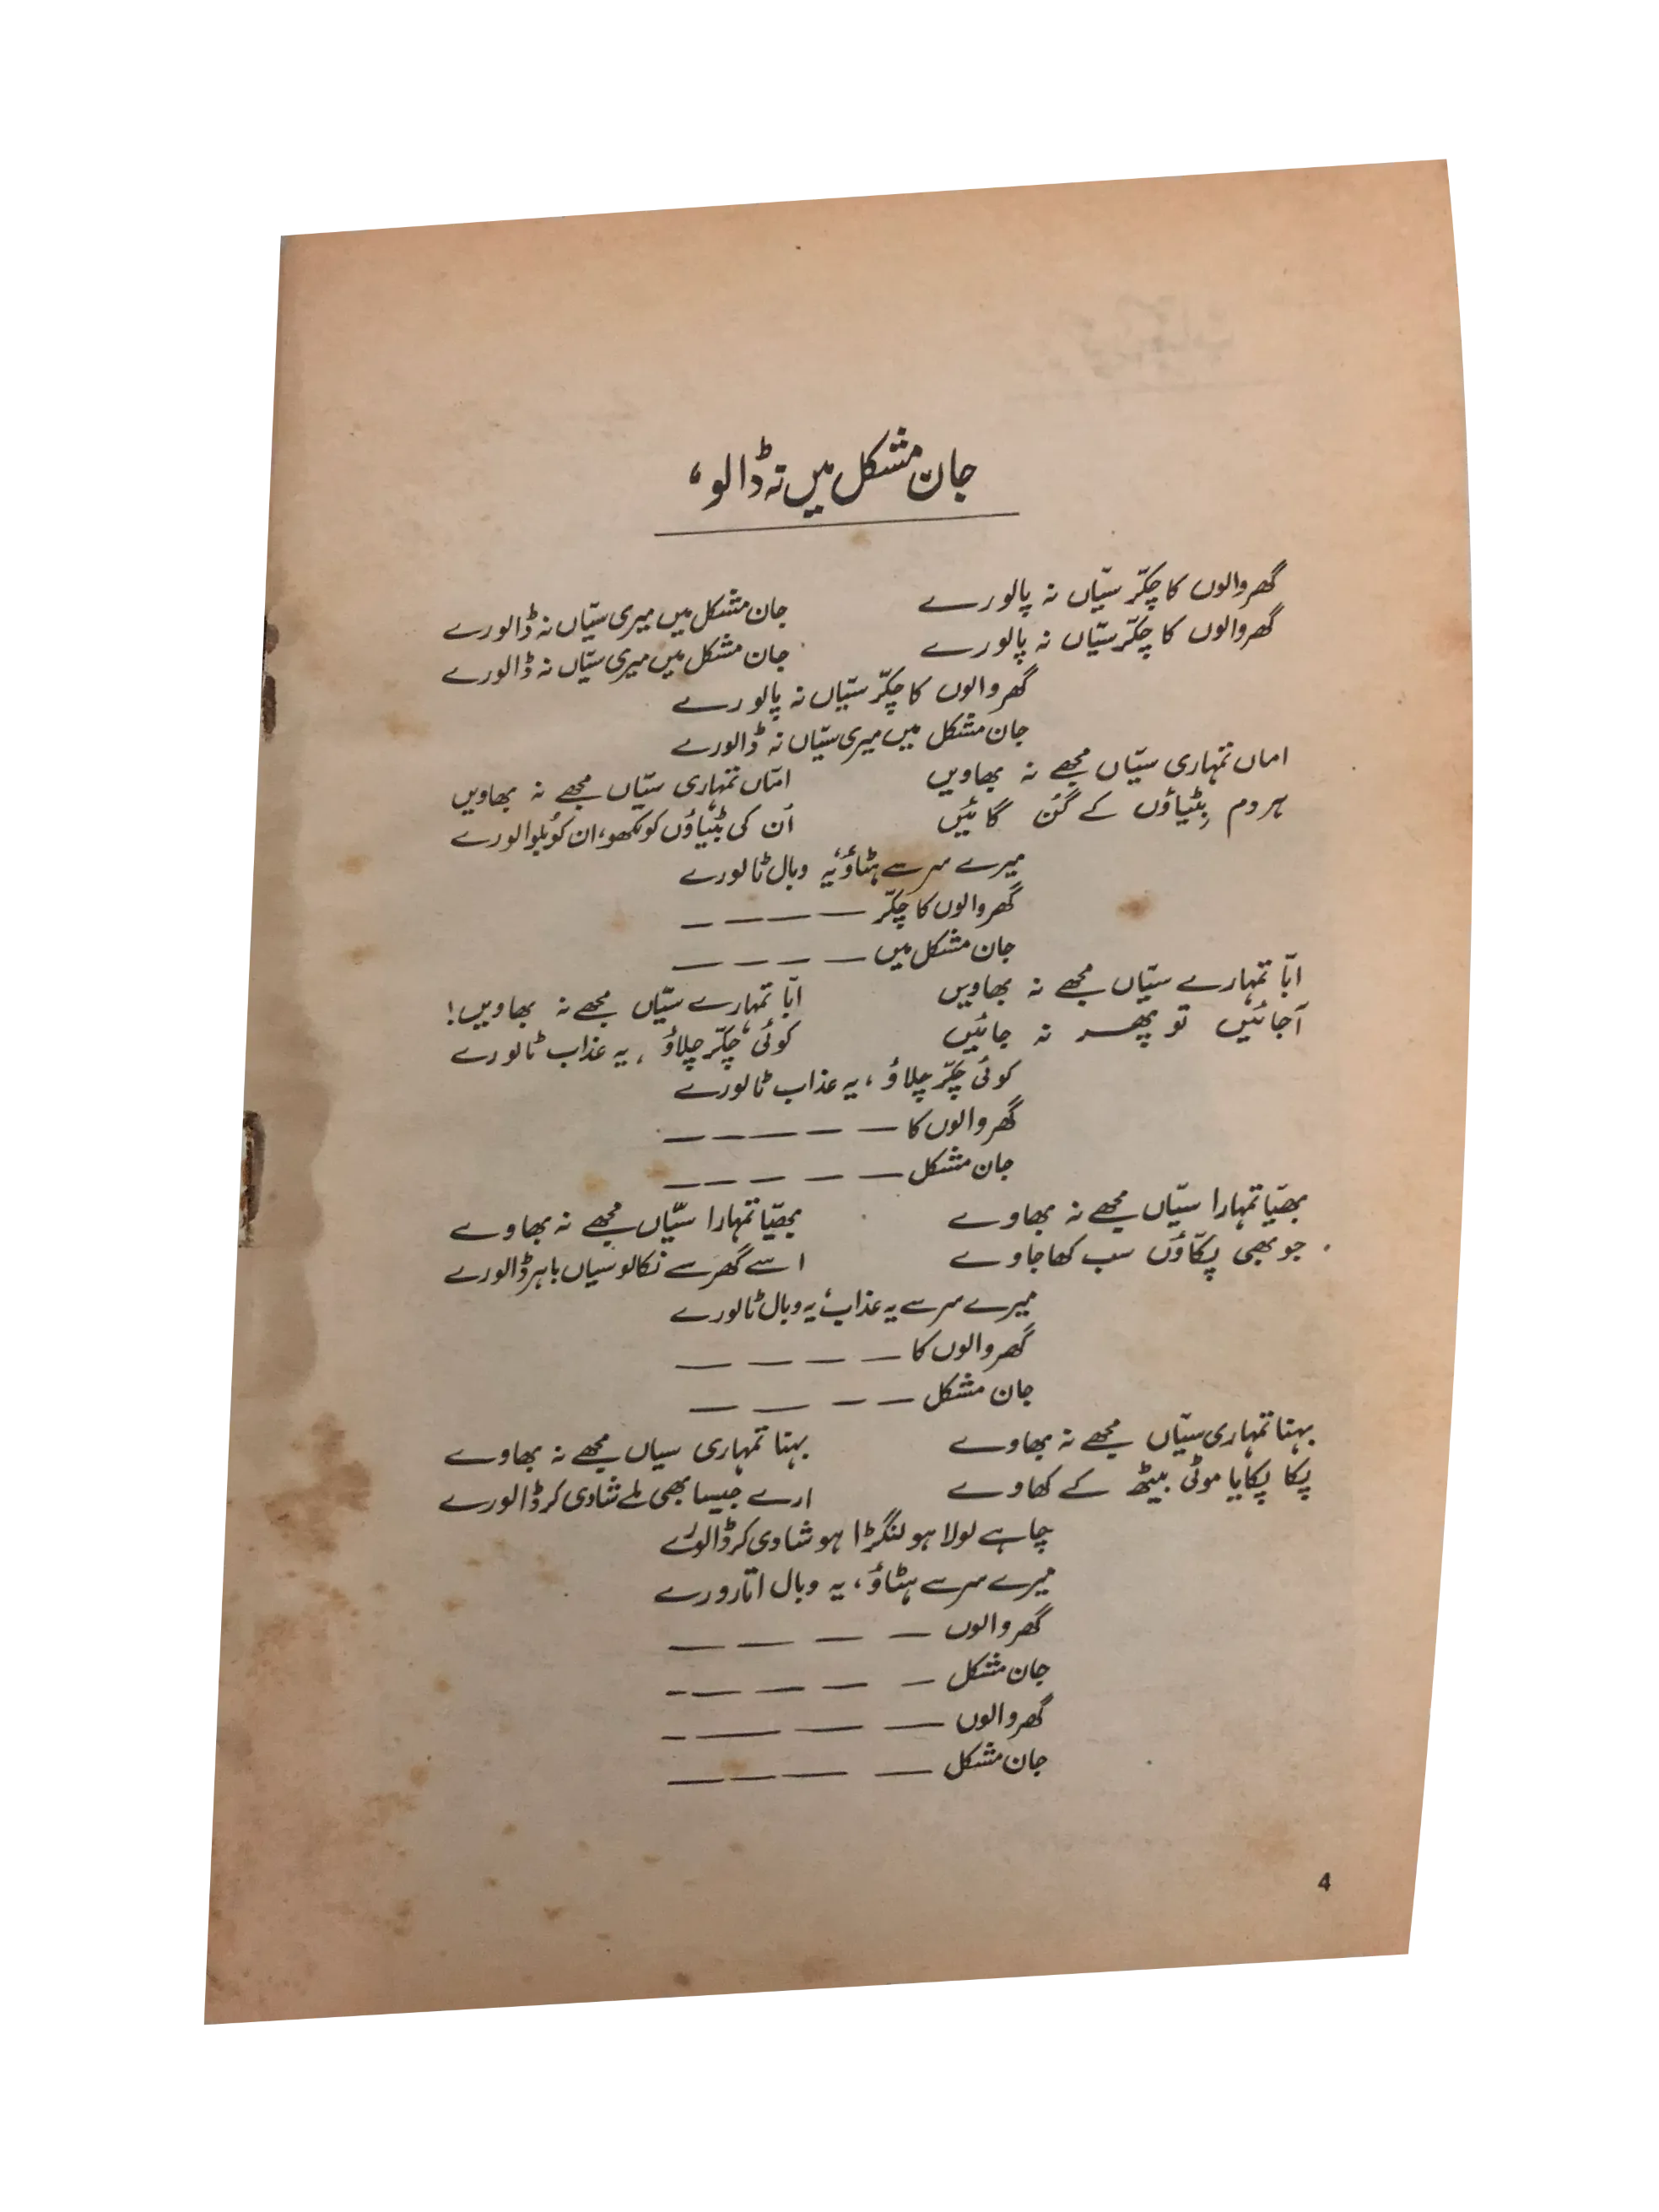 جان مشکل میں نہ ڈالو،
گھر والوں کا چکّر سیّاں نہ پالو رے    جان مشکل میں میری سیّاں نہ ڈالو رے
گھر والوں کا چکّر سیّاں نہ پالو رے    جان مشکل میں میری سیّاں نہ ڈالو رے
گھر والوں کا چکّر سیّاں نہ پالو رے
جان مشکل میں میری سیّاں نہ ڈالو رے
اماں تمہاری سیّاں مجھے نہ بھاویں    امّاں تمہاری سیّاں مجھے نہ بھاویں
ہر دم بِٹیاؤں کے گُن گائیں    اُن کی بٹیاؤں کو لکھو، ان کو بُلوا لو رے
میرے سر سے ہٹاؤ، یہ وبال ٹالو رے
گھر والوں کا چکّر — — — —
جان مشکل میں — — — —
ابّا تمہارے سیّاں مجھے نہ بھاویں    ابّا تمہارے سیّاں مجھے نہ بھاویں!
آجائیں تو پھر نہ جائیں    کوئی چکّر چلاؤ، یہ عذاب ٹالو رے
کوئی چکّر چلاؤ، یہ عذاب ٹالو رے
گھر والوں کا — — — — —
جان مشکل — — — — —
بھیّا تمہارا سیّاں مجھے نہ بھاوے    بھیّا تمہارا سیّاں مجھے نہ بھاوے
جو بھی پکّاؤں سب کھا جاوے    اسے گھر سے نکالو سیاں باہر ڈالو رے
میرے سر سے یہ عذاب، یہ وبال ٹالو رے
گھر والوں کا — — — —
جان مشکل — — — —
بہنا تمہاری سیّاں مجھے نہ بھاوے    بہنا تمہاری سیاں مجھے نہ بھاوے
پکا پکایا موٹی بیٹھ کے کھاوے    ارے جیسا بھی ملے شادی کر ڈالو رے
چاہے لولا ہو لنگڑا ہو شادی کر ڈالو رے
میرے سر سے ہٹاؤ، یہ وبال اتارو رے
گھر والوں — — — —
جان مشکل — — — — -
گھر والوں — — — -
جان مشکل — — — —
4